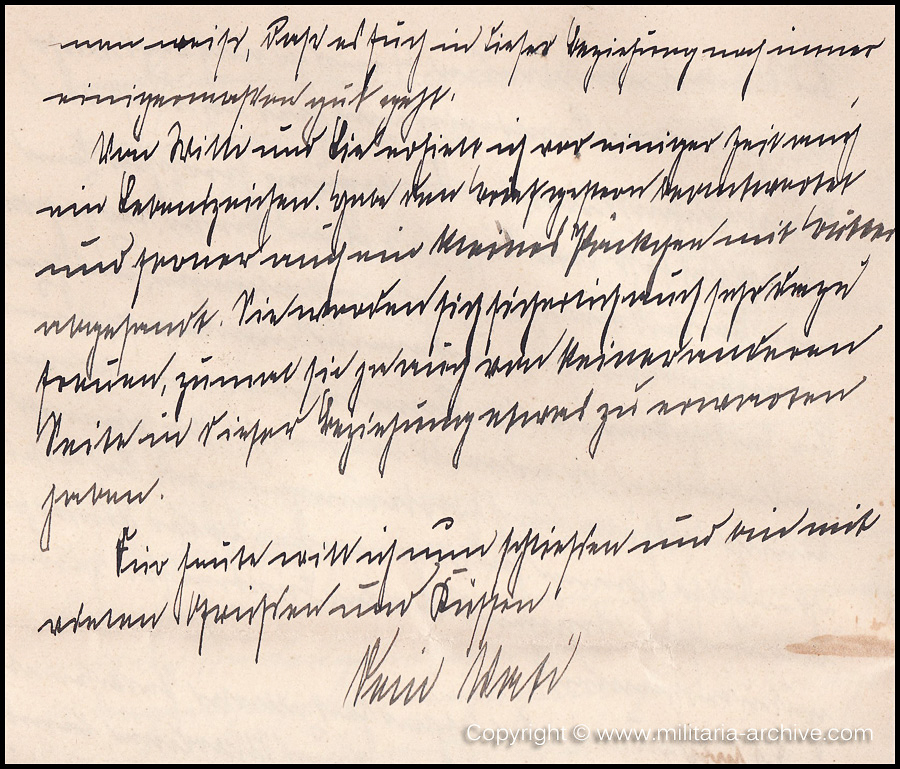 man weiss, dass es Euch in dieser Beziehung noch immer
einigermassen gut geht.
Von Willi und Lie erhielt ich vor einiger Zeit auch
ein Lebenszeichen. Habe den Brief gestern beantwortet
und ferner auch ein kleines Päckchen mit Butter
abgesandt. Sie werden sich sicherlich auch sehr dazu
freuen, zumal sie ja auch von keiner anderen
Seite in dieser Beziehung etwas zu erwarten
haben.
Für heute will ich nun schliessen und bin mit
vielen Grüssen und Küssen
Dein
Copyright © www.militaria-archive.com